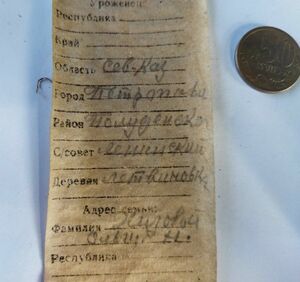 Уроженец
Республика
Край
Область Сев-Каз
Город Петропавл
Район Полуденско
С/совет Ленинский
Деревня Литвиновка
Адрес семьи:
Фамилия
Ольги Н.
Республика
50